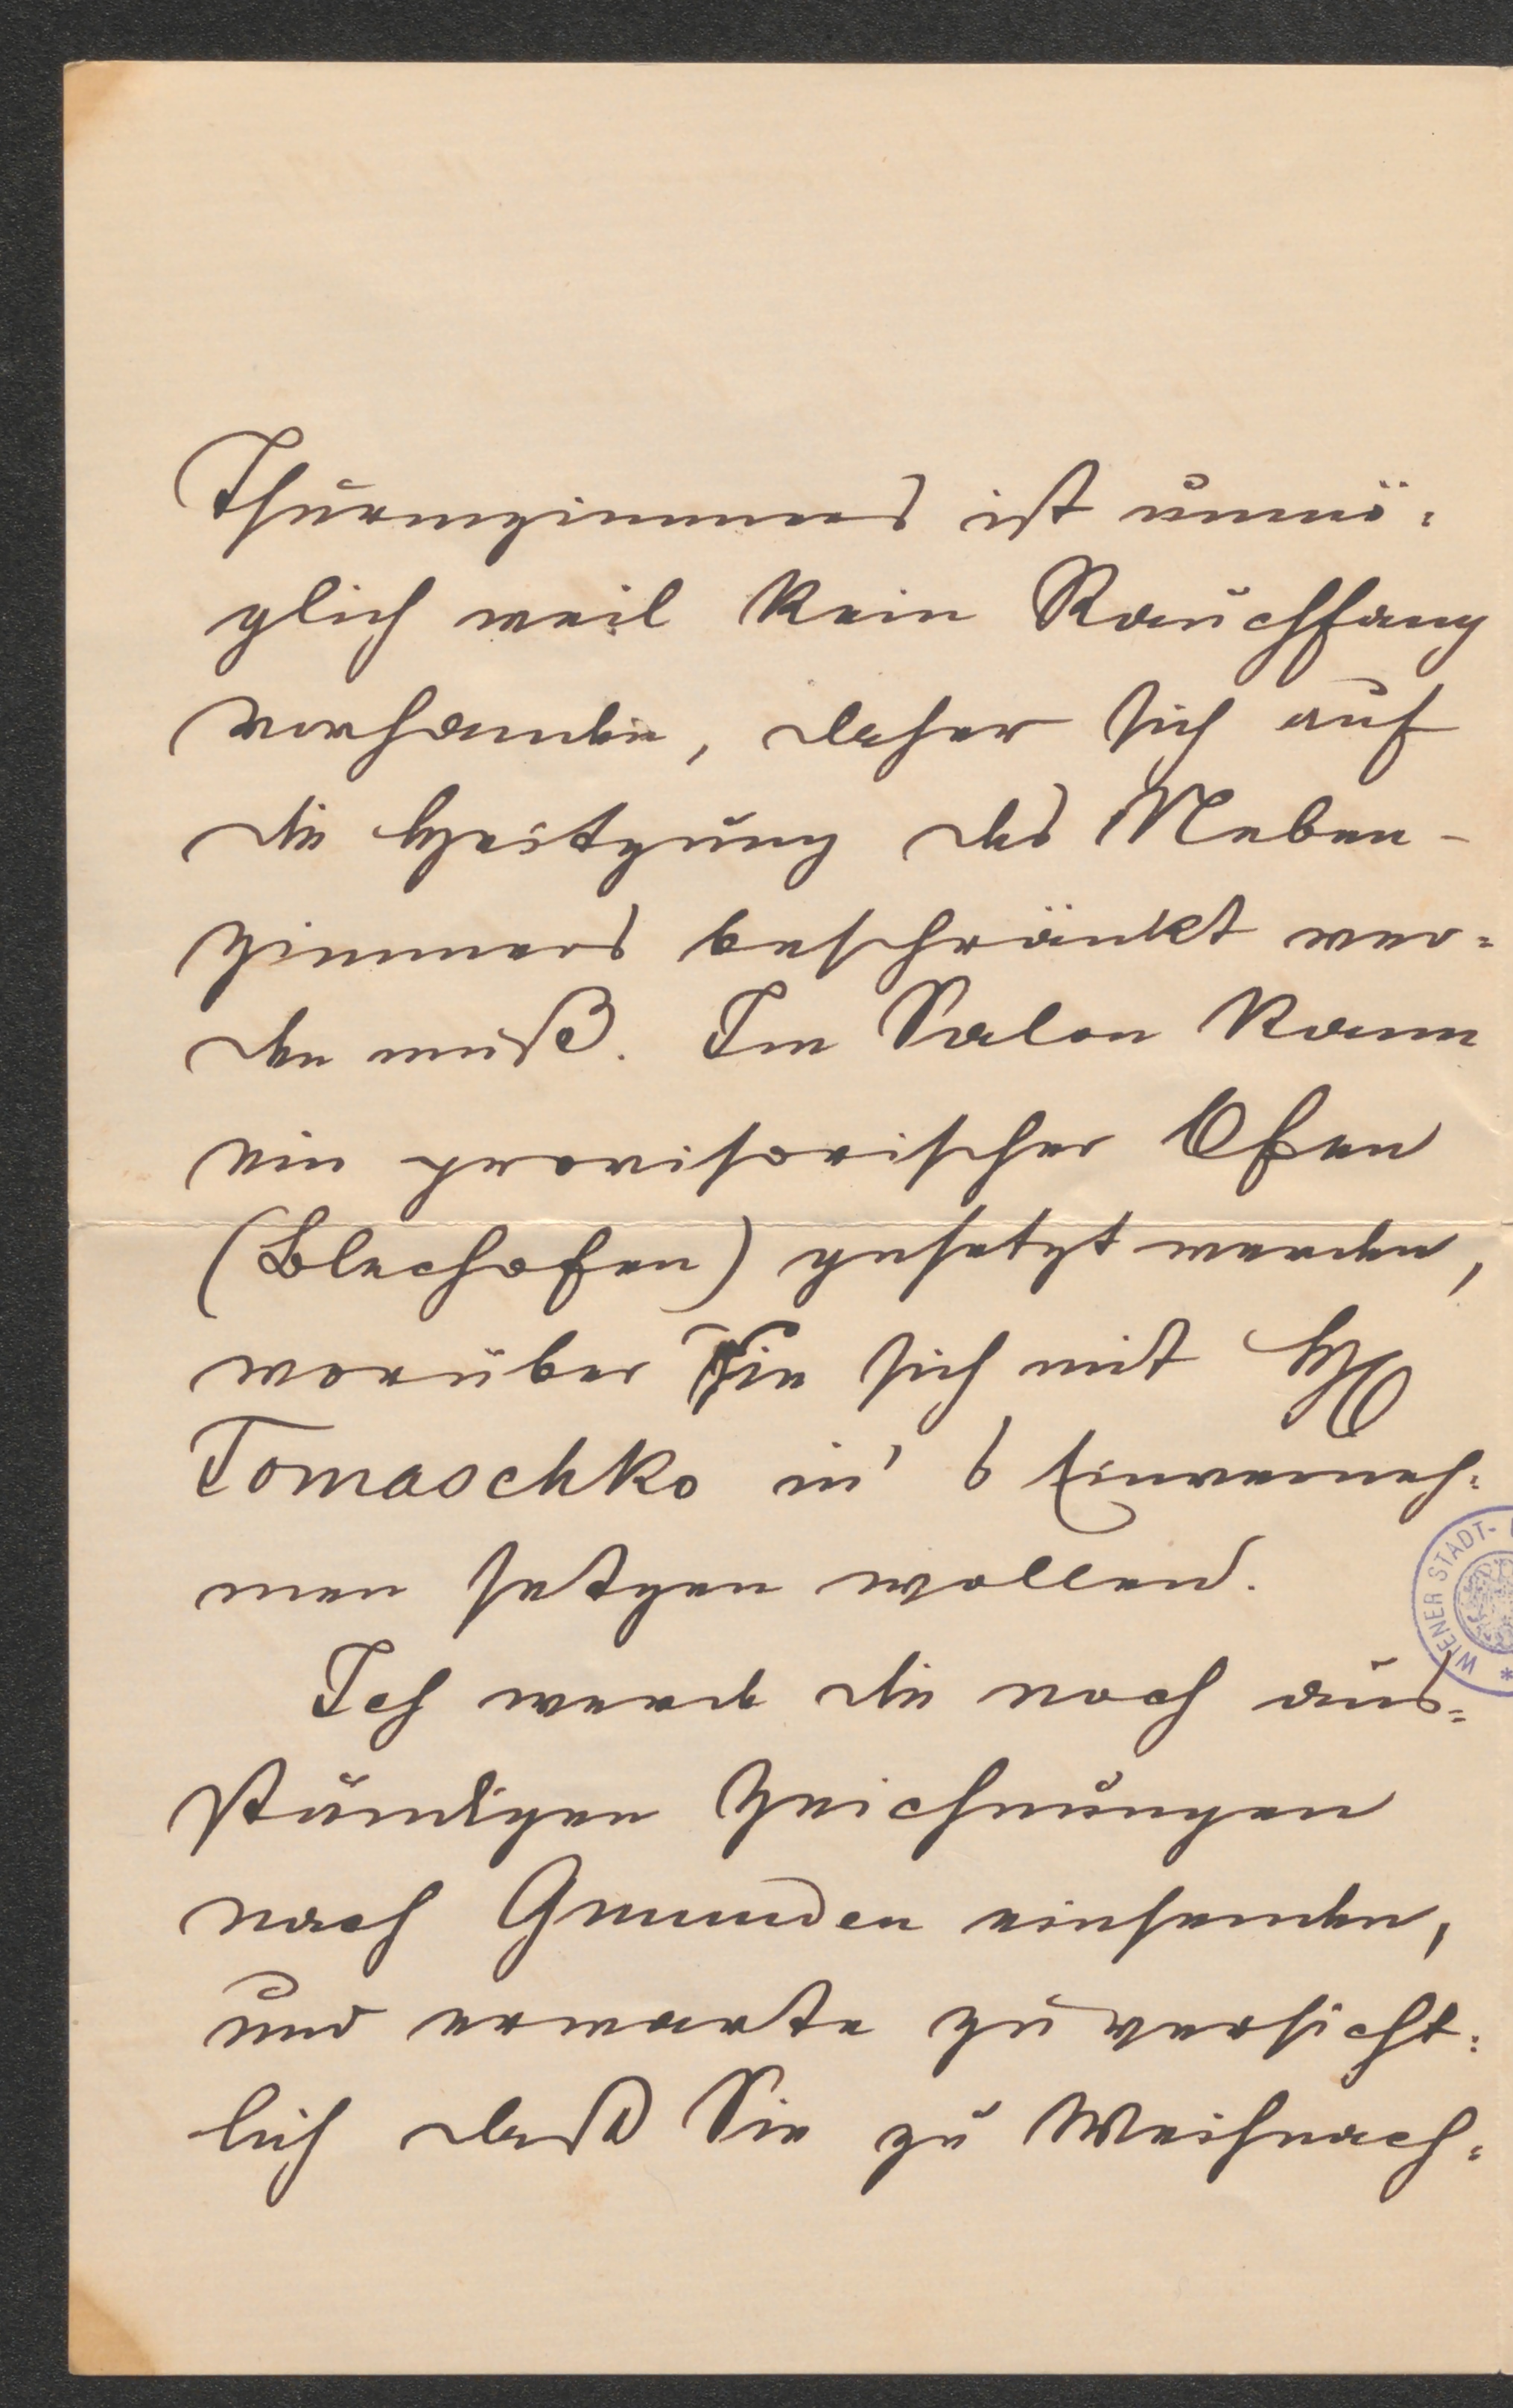 Thurmzimmers ist unmö:
glich weil kein Rauchfang
vorhanden, daher sich auf
die Heitzung des Neben-
zimmers beschränkt wer:
den muß. Im Salon kann
ein provisorischer Ofen
(Blechofen) gesetzt werden,
worüber Sie sich mit H
Tomaschko in's Einverneh:
men setzen wollen.
Ich werde die noch aus:
ständigen Zeichnungen
nach Gmunden einsenden,
und erwarte zuversicht:
lich daß Sie zu Weihnach:
WIENER STADT-